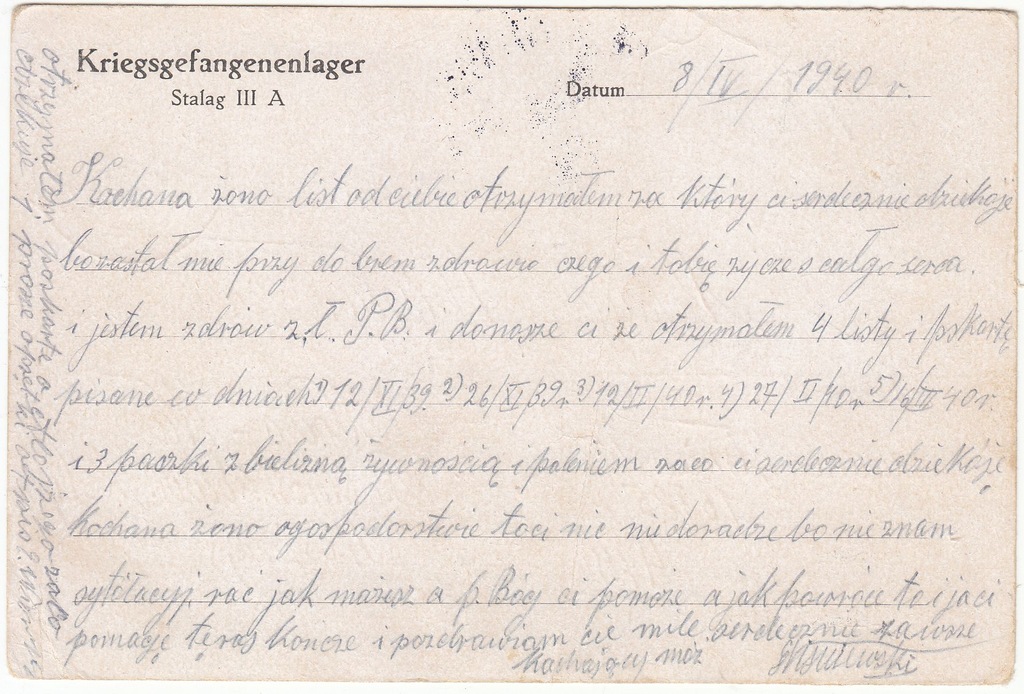 Kriegsgefangenenlager
Stalag III A
Datum 8/IV/1940 r.
Kochana żono list od ciebie otrzymałem za który ci serdecznie dziekoje
bo zastał mie przy dobrem zdrowiu czego i tobię życze s całgo serca.
i jestem zdrów z.ł. P.B. i donosze ci że otrzymałem 4 listy i pskartę
pisane w dniach 1) 12/XI/39. 2) 26/XI/39 r 3) 12/II/40 r. 4) 27/II/40 r 5) 16/III 40 r.
i 3 paczki z bielizną żywnością i paleniem zaco ci serdecznie dziekóję
kochana żono ogospodorstwie toci nic nidoradze bo nieznam
sytółacyji, rać jak możesz a p. Bóg ci pomoże a jak powróce to i ja ci
pomagę teras koncze i pozdrawiam cie mile serdecznie zawsze
kochający mąż
otrzymałem poskarte o